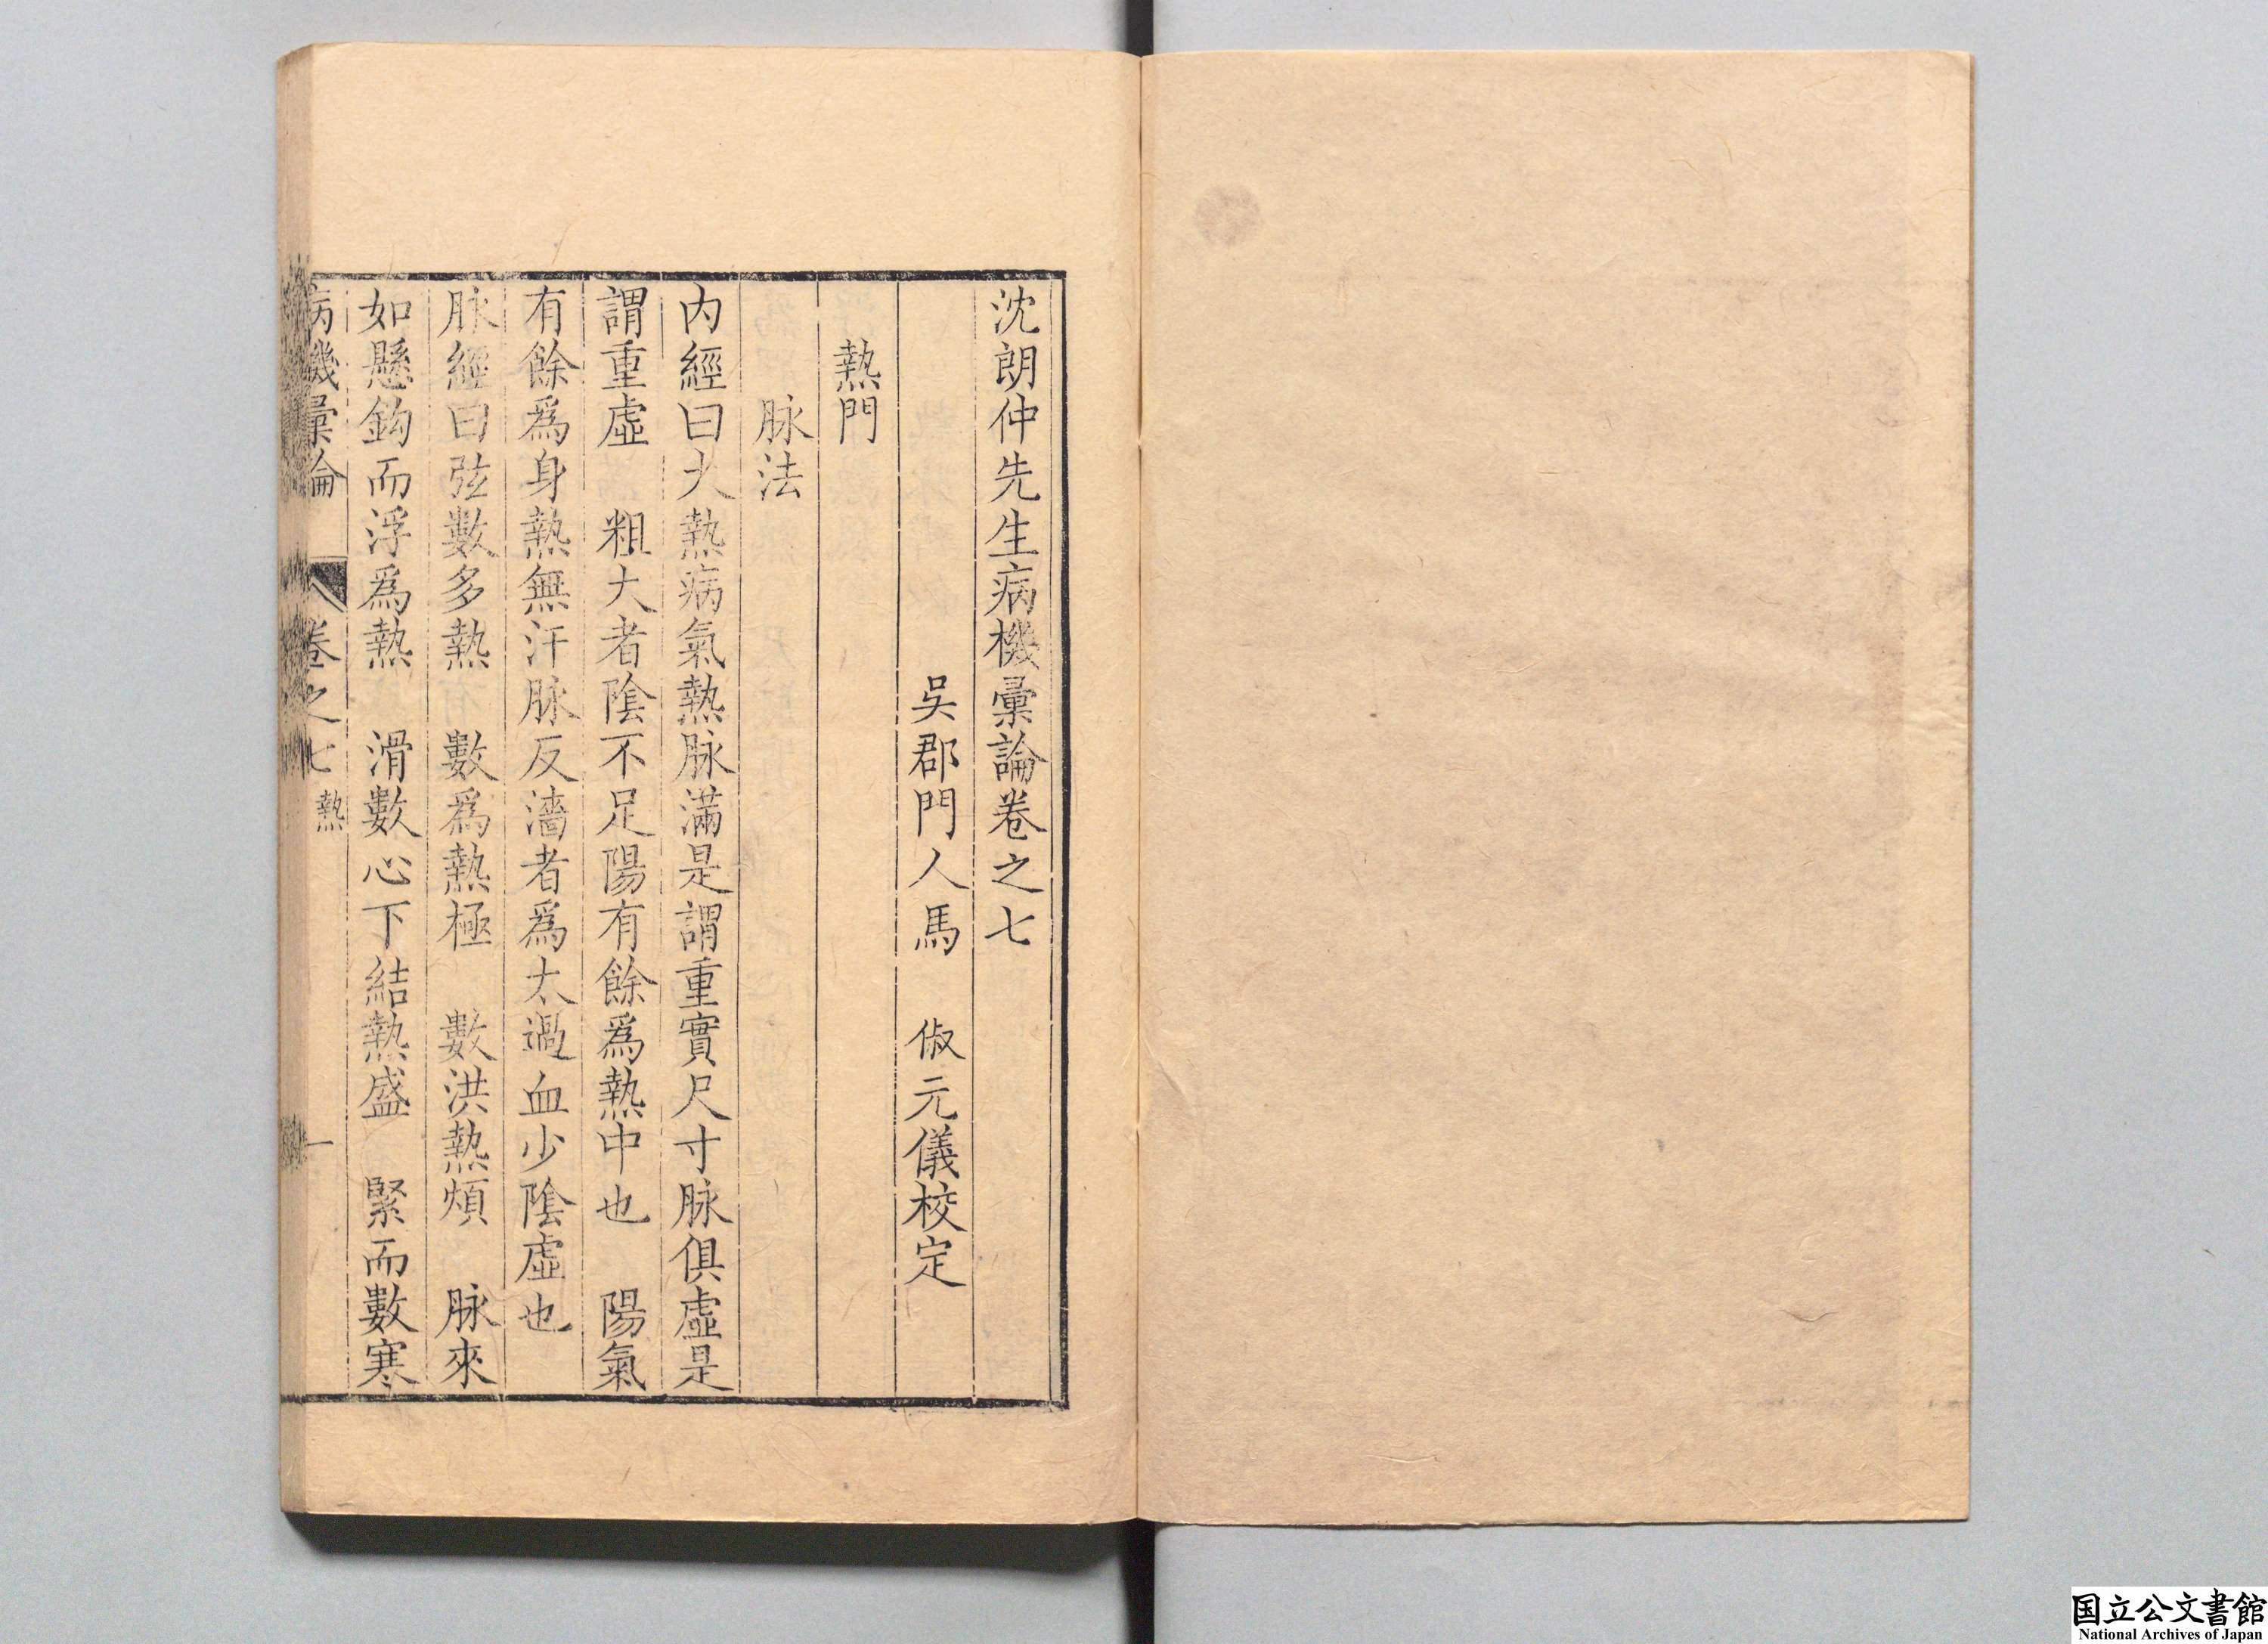 沈朗仲先生病機彙論卷之七
吳郡門人馬　俶元儀校定
熱門
脉法
內經曰大熱病氣熱脉滿是謂重實尺寸脉俱虛是
謂重虛　粗大者陰不足陽有餘爲熱中也　陽氣
有餘爲身熱無汗脉反濇者爲太過血少陰虛也
脉經曰弦數多熱　數爲熱極　數洪熱煩　脉來
如懸鈎而浮爲熱　滑數心下結熱盛　緊而數寒
病機彙論　卷之七　熱　一
国立公文書館
National Archives of Japan